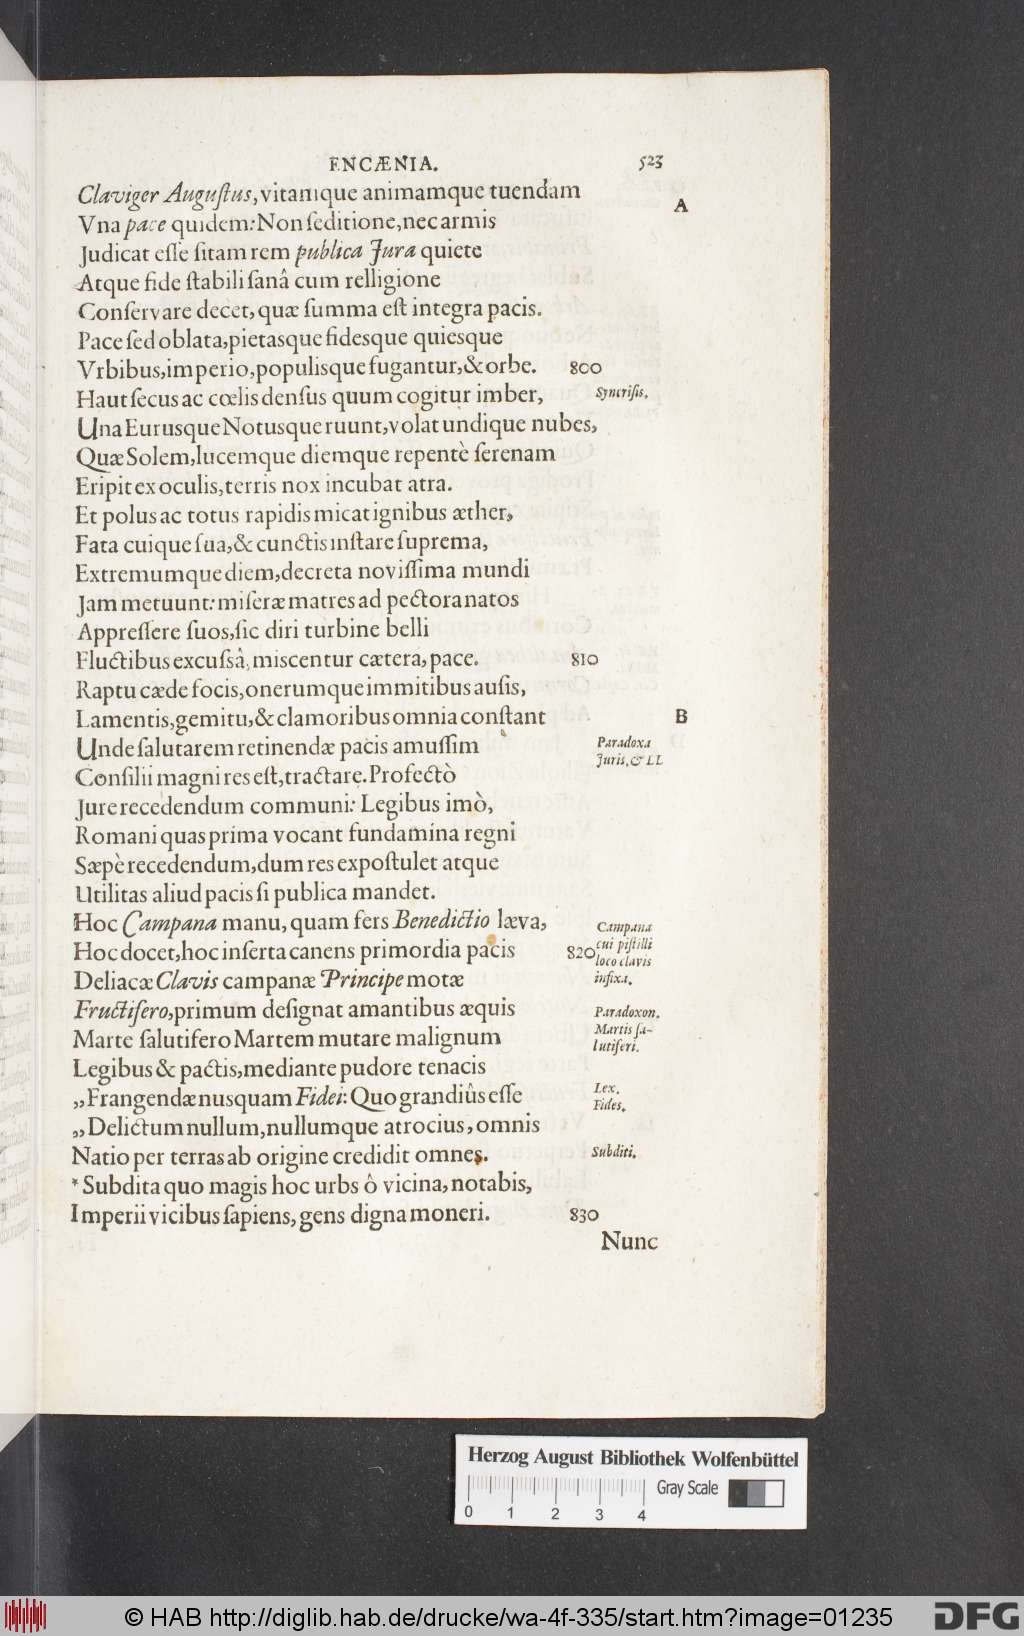 ENCÆNIA. 523
Claviger Auguſtus, vitamque animamque tuendam
A
Vna pace quidem: Non ſeditione, nec armis
Judicat eſſe ſitam rem publica Jura quiete
Atque fide ſtabili ſanâ cum relligione
Conſervare decet, quæ ſumma eſt integra pacis.
Pace ſed oblata, pietasque fidesque quiesque
Vrbibus, imperio, populisque fugantur, & orbe. 800
Haut ſecus ac cœlis denſus quum cogitur imber, Syncriſis.
Una Eurusque Notusque ruunt, volat undique nubes,
Quæ Solem, lucemque diemque repentè ſerenam
Eripit ex oculis, terris nox incubat atra.
Et polus ac totus rapidis micat ignibus æther,
Fata cuique ſua, & cunctis inſtare ſuprema,
Extremumque diem, decreta noviſſima mundi
Jam metuunt: miſeræ matres ad pectora natos
Appreſſere ſuos, ſic diri turbine belli
Fluctibus excuſsâ, miscentur cætera, pace. 810
Raptu cæde focis, onerumque immitibus auſis,
Lamentis, gemitu, & clamoribus omnia conſtant B
Unde ſalutarem retinendæ pacis amuſſim Paradoxa
Juris, & LL
Conſilii magni res eſt, tractare. Profectò
Jure recedendum communi: Legibus imò,
Romani quas prima vocant fundamina regni
Sæpè recedendum, dum res expoſtulet atque
Utilitas aliud pacis ſi publica mandet.
Hoc Campana manu, quam fers Benedictio læva, Campana
Hoc docet, hoc inſerta canens primordia pacis 820 cui piſtilli
loco clavis
Deliacæ Clavis campanæ Principe motæ infixa.
Fructifero, primum deſignat amantibus æquis Paradoxon.
Marte ſalutifero Martem mutare malignum Martis ſa-
lutiferi.
Legibus & pactis, mediante pudore tenacis
„Frangendæ nusquam Fidei: Quo grandiûs eſſe Lex.
Fides.
„Delictum nullum, nullumque atrocius, omnis
Natio per terras ab origine credidit omnes. Subditi.
* Subdita quo magis hoc urbs ô vicina, notabis,
Imperii vicibus ſapiens, gens digna moneri. 830
Nunc
Herzog August Bibliothek Wolfenbüttel
Gray Scale
0 1 2 3 4
© HAB http://diglib.hab.de/drucke/wa-4f-335/start.htm?image=01235
DFG